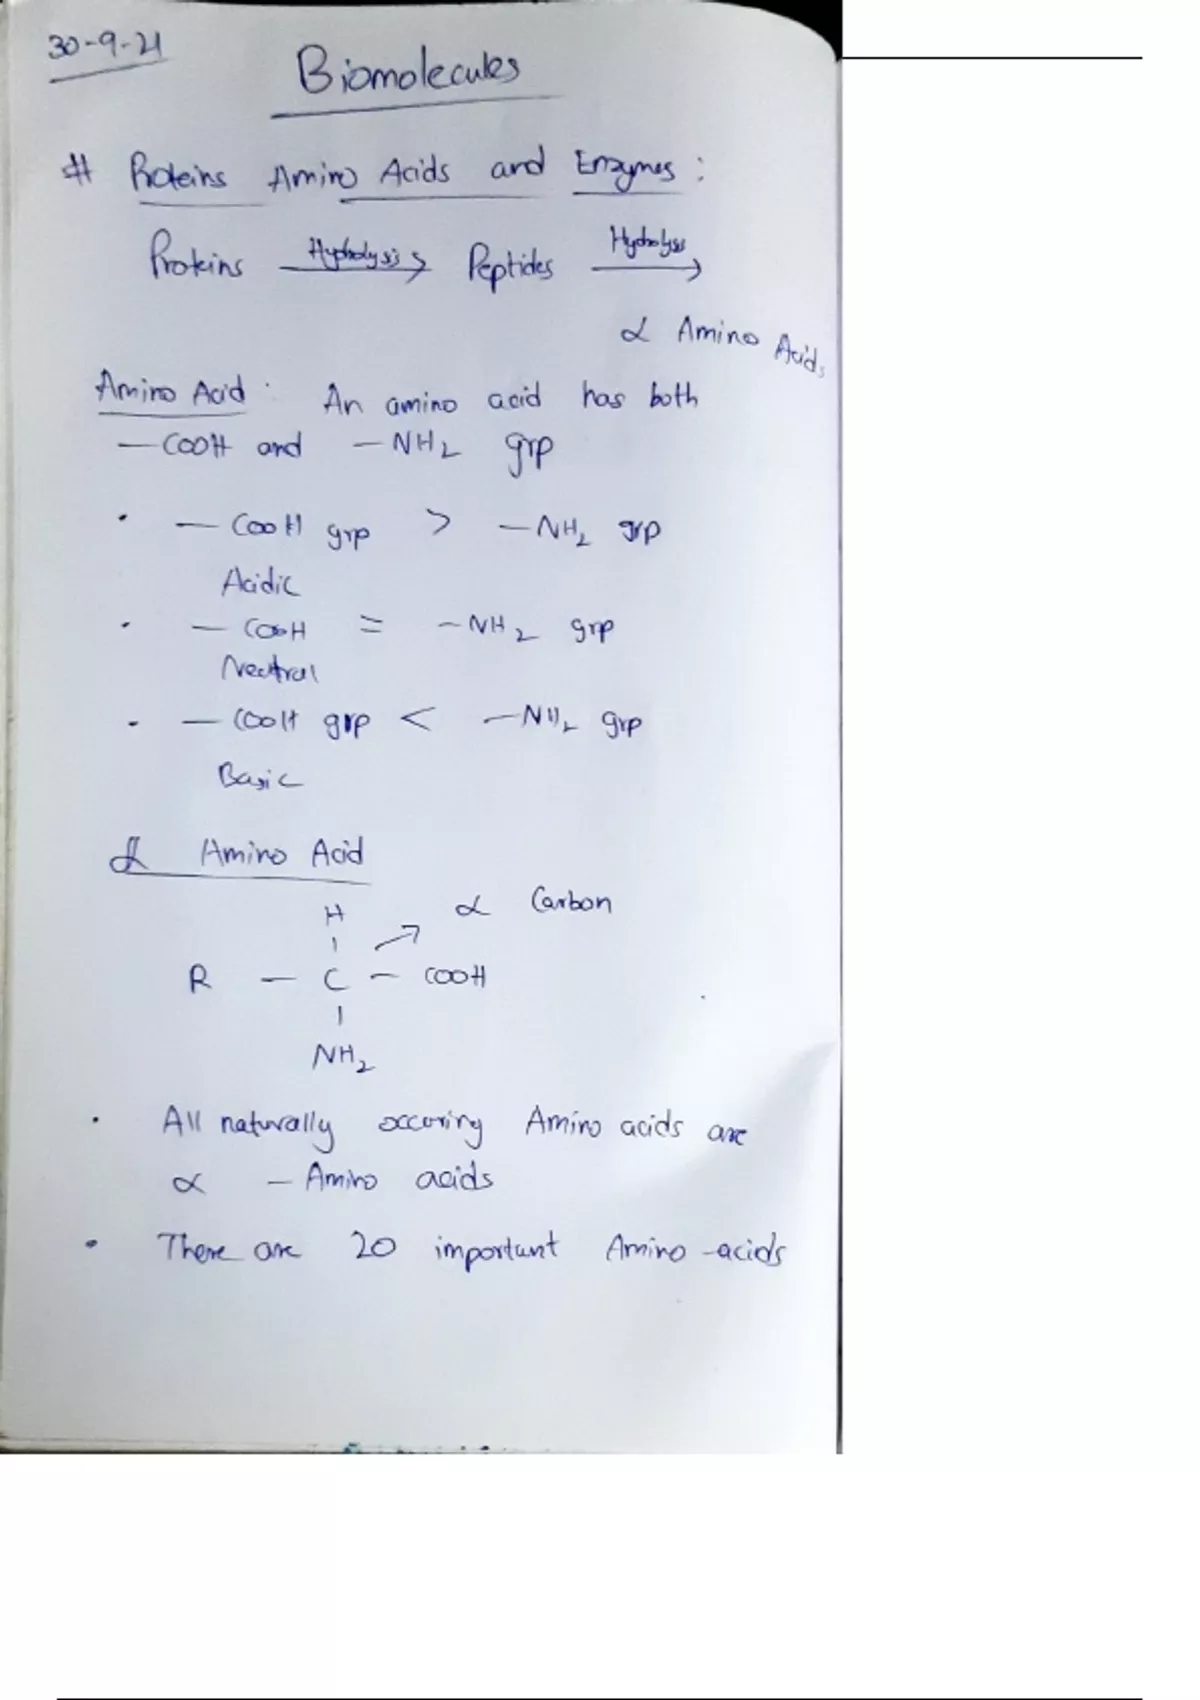 30-9-21
Biomolecules
# Proteins Amino Acids and Enzymes :
Proteins Hydrolysis → Peptides Hydrolysis →
α Amino Acids
Amino Acid : An amino acid has both
— COOH and — NH2 grp
• — COOH grp > — NH2 grp
Acidic
• — COOH = — NH2 grp
Neutral
• — COOH grp < — NH2 grp
Basic
α Amino Acid
H α Carbon
R — C — COOH
NH2
• All naturally occuring Amino acids are
α — Amino acids
• There are 20 important Amino -acids